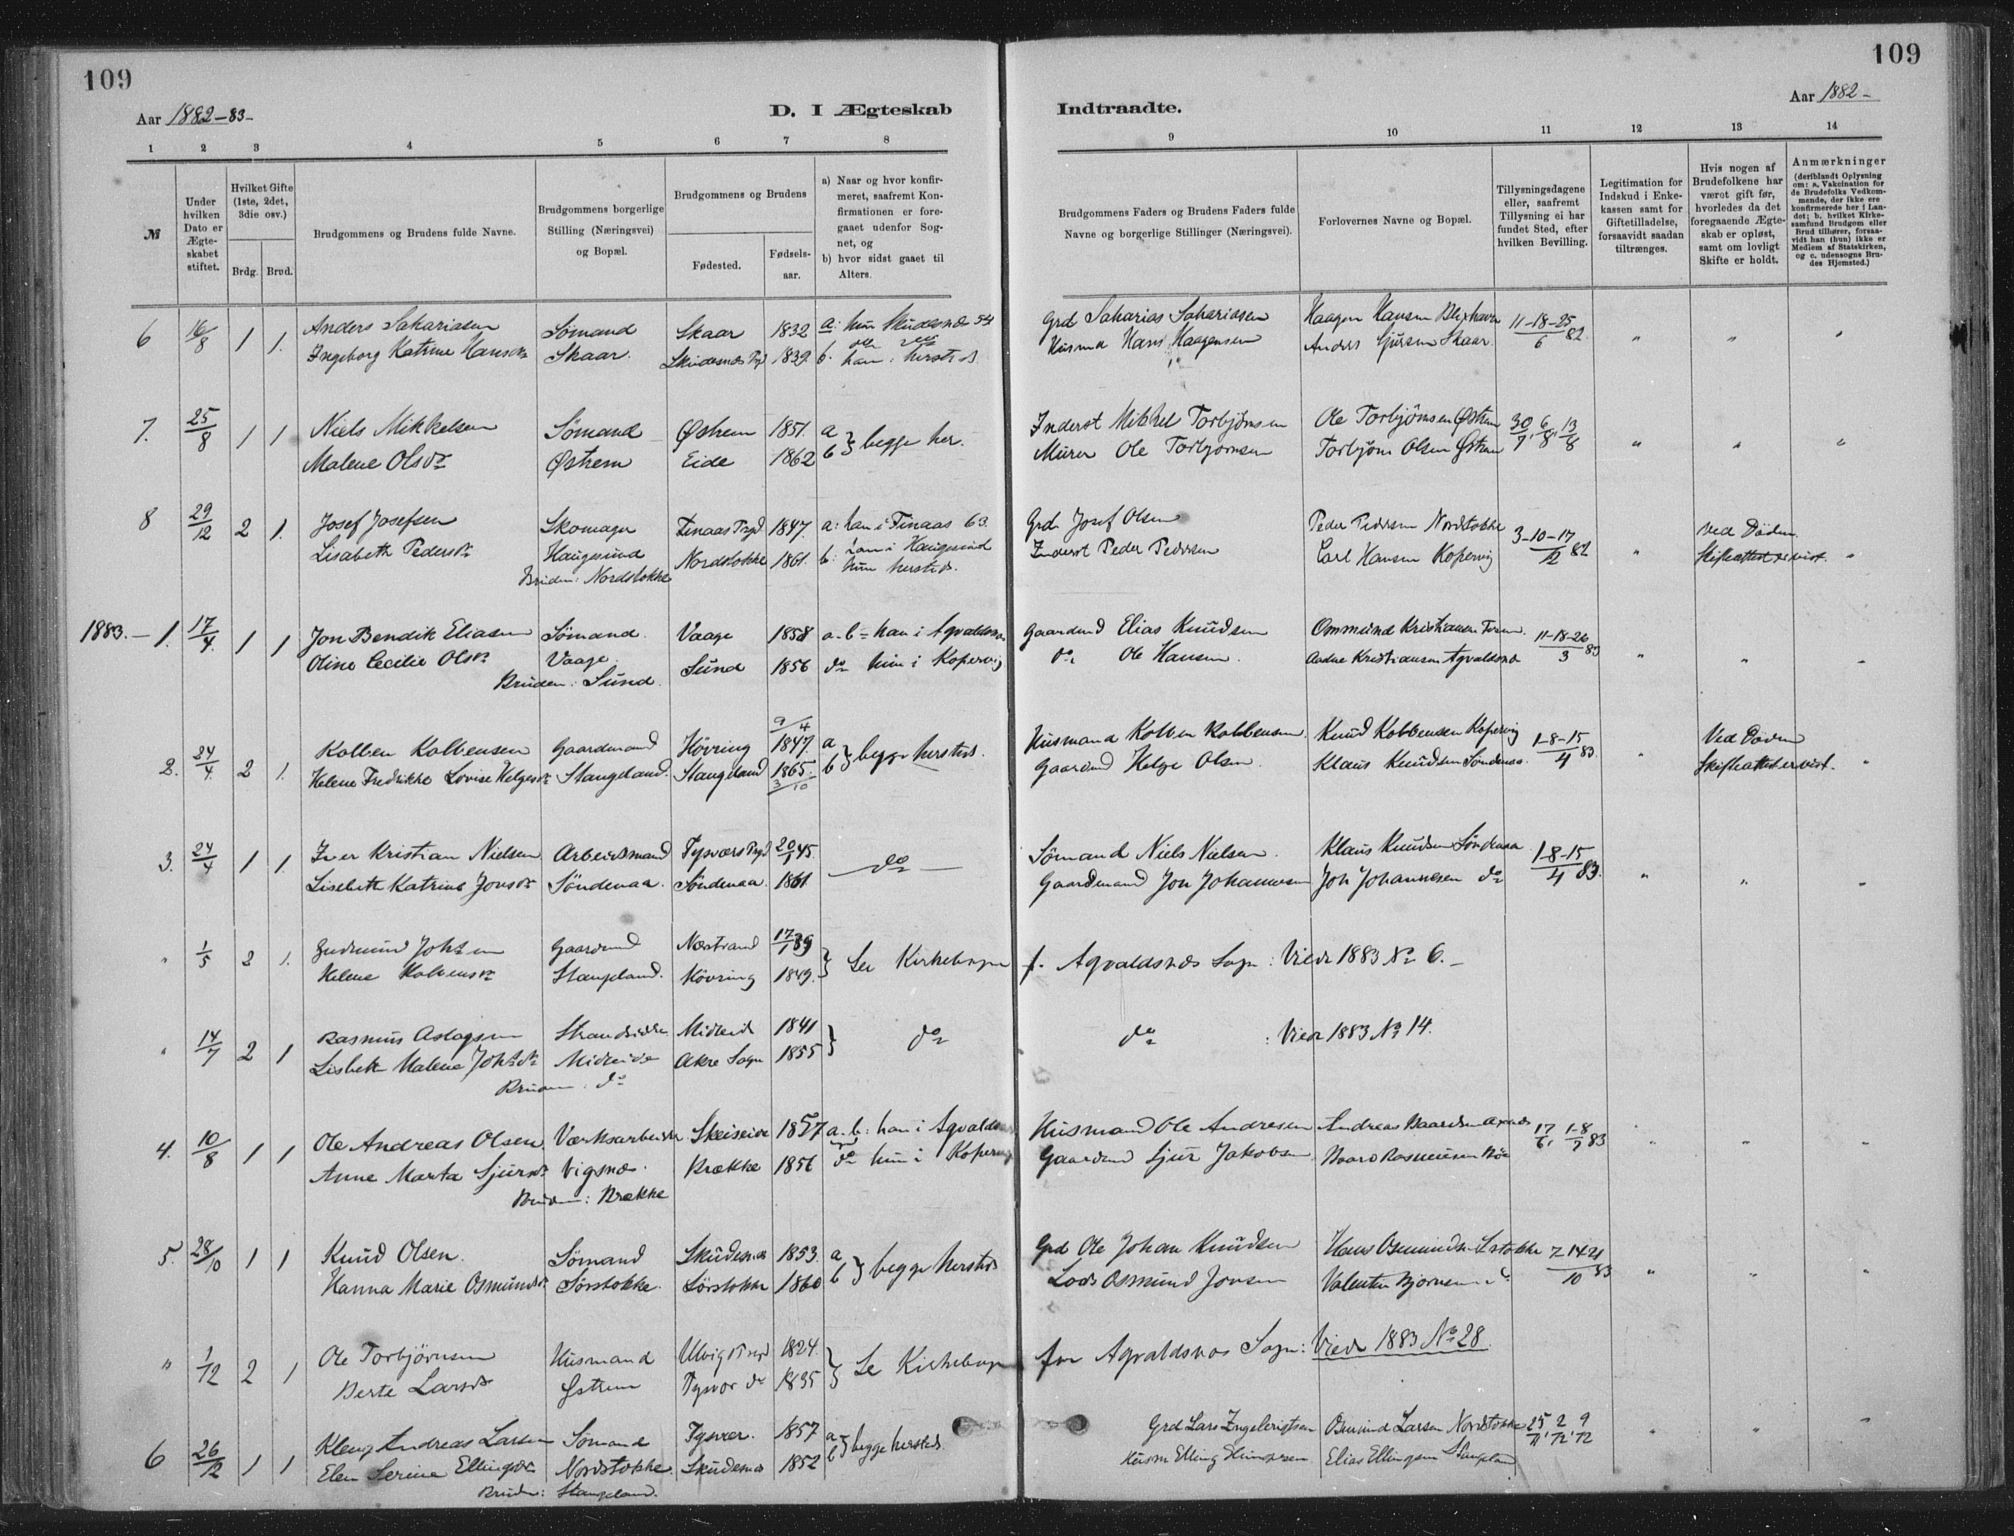 109
109
Aar 1882-83-
D. I Ægteskab
Indtraadte.
Aar 1882-
1 2 3 4 5 6 7 8
9 10 11 12 13 14
№
Under hvilken Dato er Ægteskabet stiftet.
Hvilket Gifte (1ste, 2det, 3die osv.)
Brdg. Brud.
Brudgommens og Brudens fulde Navne.
Brudgommens borgerlige Stilling (Næringsvei) og Bopæl.
Brudgommens og Brudens
Fødested.
Fødselsaar.
a) Naar og hvor konfirmeret, saafremt Konfirmationen er foregaaet udenfor Sognet, og
b) hvor sidst gaaet til Alters.
Brudgommens Faders og Brudens Faders fulde Navne og borgerlige Stillinger (Næringsvei).
Forlovernes Navne og Bopæl.
Tillysningsdagene eller, saafremt Tillysning ei har fundet Sted, efter hvilken Bevilling.
Legitimation for Indskud i Enkekassen samt for Giftetilladelse, forsaavidt saadan tiltrænges.
Hvis nogen af Brudefolkene har været gift før, hvorledes da det foregaaende Ægteskab er opløst, samt om lovligt Skifte er holdt.
Anmærkninger
(deriblandt Oplysning om: a. Vakcination for de Brudefolks Vedkommende, der ikke ere konfirmerede her i Landet; b. hvilket Kirkesamfund Brudgom eller Brud tilhører, forsaavidt han (hun) ikke er Medlem af Statskirken, og c. udensogns Brudes Hjemsted.)
6 16/8 1 1. Anders Sakariasen Sømand Skaar 1832 a: hun Skudesnæs 54 Grd Saharias Sahariasen Haagen Hansen 11-18-25/6 82 " " "
Ingeborg Katrine Hansdr Skaar. Skudesnæs Prgd 1839 b. han: hersteds Husmd Hans Haagensen Anders Sjursen Skaar
7. 25/8 1 1 Niels Mikkelsen Sømand Østrem 1851. a b } begge her. Inderst Mikkel Torbjørnsen Ole Torbjørnsen Østrem 30/7, 6/8, 13/8 " " "
Malene Olsdr Østrem Eide 1862 Murer Ole Torbjørnsen Torbjørn Olsen Østrem
8 29/12 2 1. Josef Josefsen Skomager Finaas Prgd 1847. a: han i Finaas 63. Grd. Josef Olsen Peder Pedersen Nordstokke 3-10-17/12 82 " Ved Døden "
Lisabeth Pedersdr Haugesund Nordstokke 1861. b: han i Haugesund Inderst Peder Pedersen Carl Hansen Kopervig Skifteattest er vist.
Bruden: Nordstokke hun hersteds.
1883. - 1. 17/4. 1 1 Jon Bendik Eliasen Sømand. Vaage 1858 a-b= han i Agvaldsnæs Gaardmd Elias Knudsen Ommund Kristiansen 11-18-26/3 83 " " "
Oline Cecilie Olsdr Vaage. Sund 1856 do hun i Kopervig do Ole Hansen. Aadne Kristiansen Agvaldsnæs
Bruden: Sund.
2. 24/4. 2 1. Kolben Kolbensen Gaardmand Høvring 9/4 1847. a b } begge hersteds. Husmand Kolben Kolbensen. Knud Kolbensen Kopervig 1-8-15/4 83. " Ved Døden "
Helene Fredrikke Lovise Helgesdr Stangeland. Stangeland 1865. 3/10 Gaardmd Helge Olsen Klaus Knudsen Søndenaa. Skifteattest er vist.
3. 24/4 1 1. Iver Kristian Nielsen Arbeidsmand Tysvær Prgd 20/1 45. do Sømand Niels Nielsen. Klaus Knudsen Søndenaa 1-8-15/4 83. " " "
Lisebeth Katrine Jonsdr Søndenaa. Søndenaa. 1861. Gaardmand Jon Johannesen Jon Johannesen do
" 1/5 2 1. Gudmund Gaardmd Næstrand 17/1 39 } Se Kirkebogen f. Agvaldsnæs Sogn: Viede 1883 No 6.
Helene Kolbensdr Stangeland. Høvring 1849.
" 14/7 2 1 Rasmus Aslagsen Strandsidder Midteide 1841 } do do : Viede 1883 No 14.
Lisbeth Malene Midteide Akre Sogn 1855
Bruden: do
4. 10/8 1 1 Ole Andreas Olsen Værksarbeider Skeiseide 1857 a. b.: han i Agvaldsnæs Husmand Ole Andresen Andreas Baardsen 17/6, 1-8/7 83 " " "
Anne Marta Sjursdr Vigsnæs. Brække 1856 do hun i Kopervig Gaardmd Sjur Jakobsen Baard Rasmussen
Bruden: Brække
5. 28/10 1 1 Knud Olsen. Sømand Skudesnæs 1853. a b } begge hersteds Grd Ole Johan Knudsen Hans Osmundsen Sstokke 7 14 21/10 83 " " "
Hanna Marie Osmundsdr Sørstokke. Sørstokke 1860 Lods Osmund Jonsen Valentin Bjørnsen do
" 1/12 2 1 Ole Torbjørnsen Husmand Ulvig Prgd 1824. } Se Kirkebogen for Agvaldsnæs Sogn: Viede 1883 No 28
Berte Larsdr Østrem Tysvær do 1835
6 26/12 1 1 Kleng Andreas Larsen Sømand Tysvær. 1857 a b } begge hersteds Grd Lars Ingebrigtsen Osmund Larsen Nordstokke 25/11, 2/12, 9/12 " " "
Elen Serine Ellingsdr Nordstokke Skudesnæs 1852 Husm Elling Elias Ellingsen Stangeland
Bruden: Stangeland.